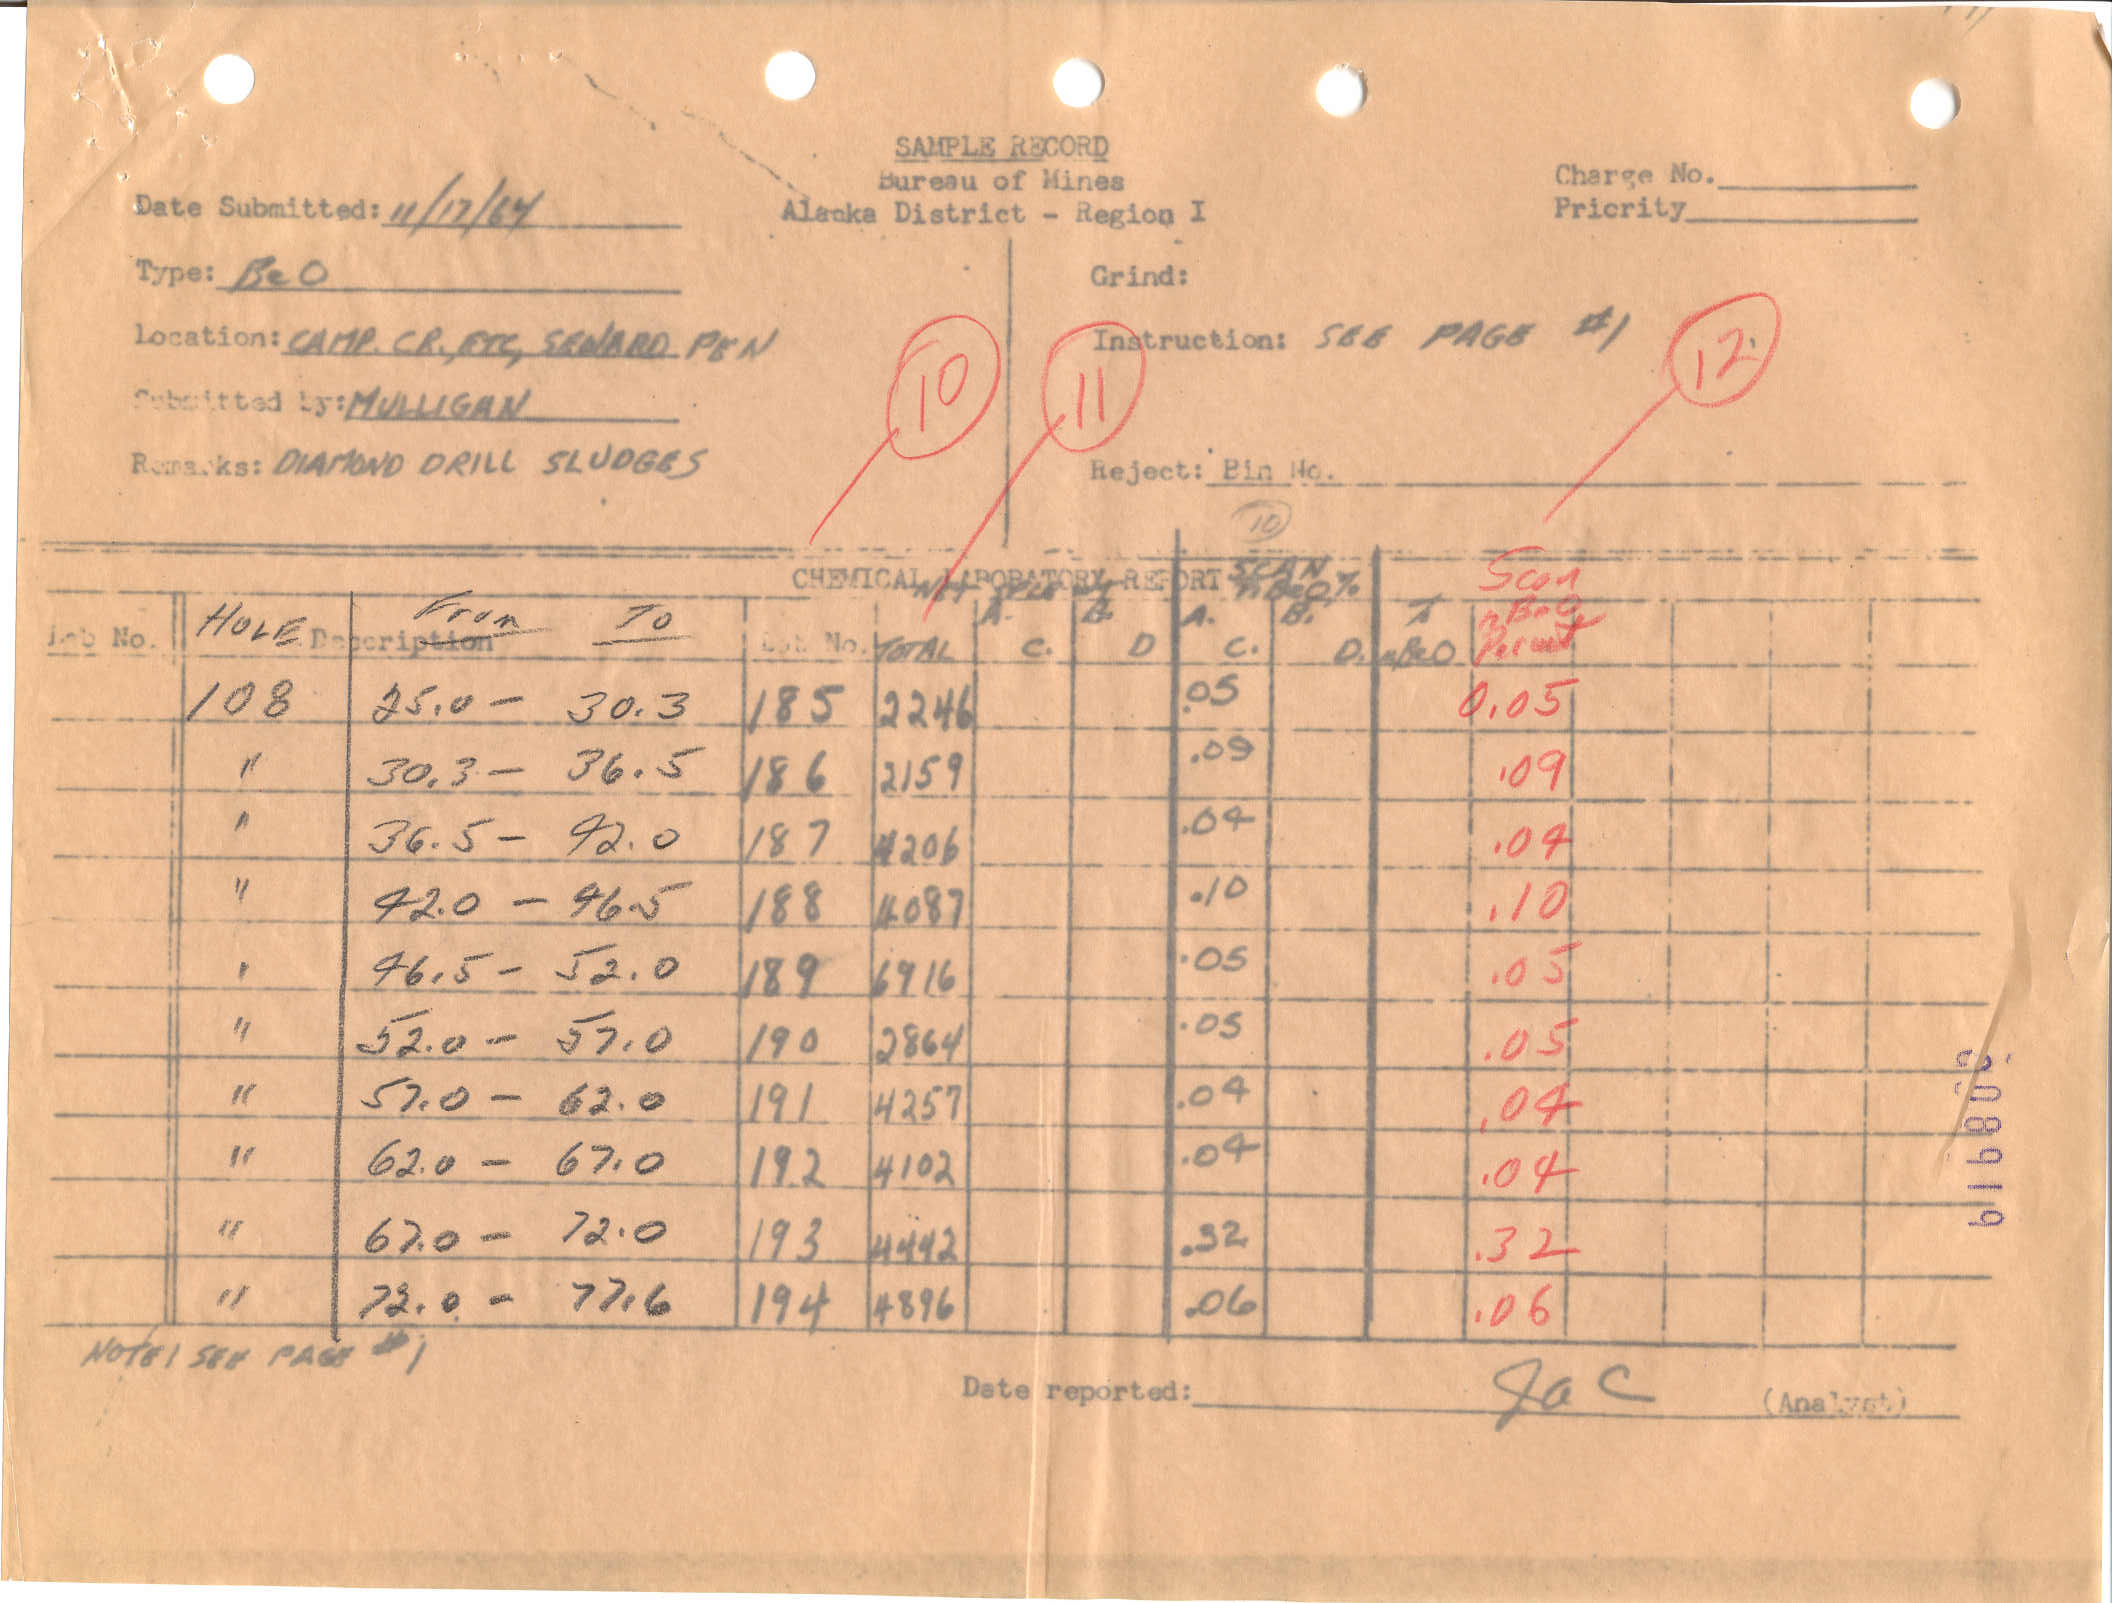 SAMPLE RECORD
Bureau of Mines
Alaska District - Region I
Charge No.
Priority
Date Submitted: 11/17/64
Type: BeO
Location: CAMP. CR., ETC, SEWARD PEN
Submitted by: MULLIGAN
Remarks: DIAMOND DRILL SLUDGES
Grind:
Instruction: SEE PAGE #1
Reject: Bin No.
10
11
12
10
CHEMICAL LABORATORY REPORT
SCAN
Scan
Job No. HOLE Description From To Lab No. TOTAL A. C. B. D A. C. B. D. BeO
108 25.0 - 30.3 185 2246 .05 0.05
" 30.3 - 36.5 186 2159 .09 .09
" 36.5 - 42.0 187 4206 .04 .04
" 42.0 - 46.5 188 4087 .10 .10
" 46.5 - 52.0 189 6916 .05 .05
" 52.0 - 57.0 190 2864 .05 .05
" 57.0 - 62.0 191 4257 .04 .04
" 62.0 - 67.0 192 4102 .04 .04
" 67.0 - 72.0 193 4442 .32 .32
" 72.0 - 77.6 194 4896 .06 .06
NOTE! SEE PAGE #1
Date reported: JaC (Analyst)